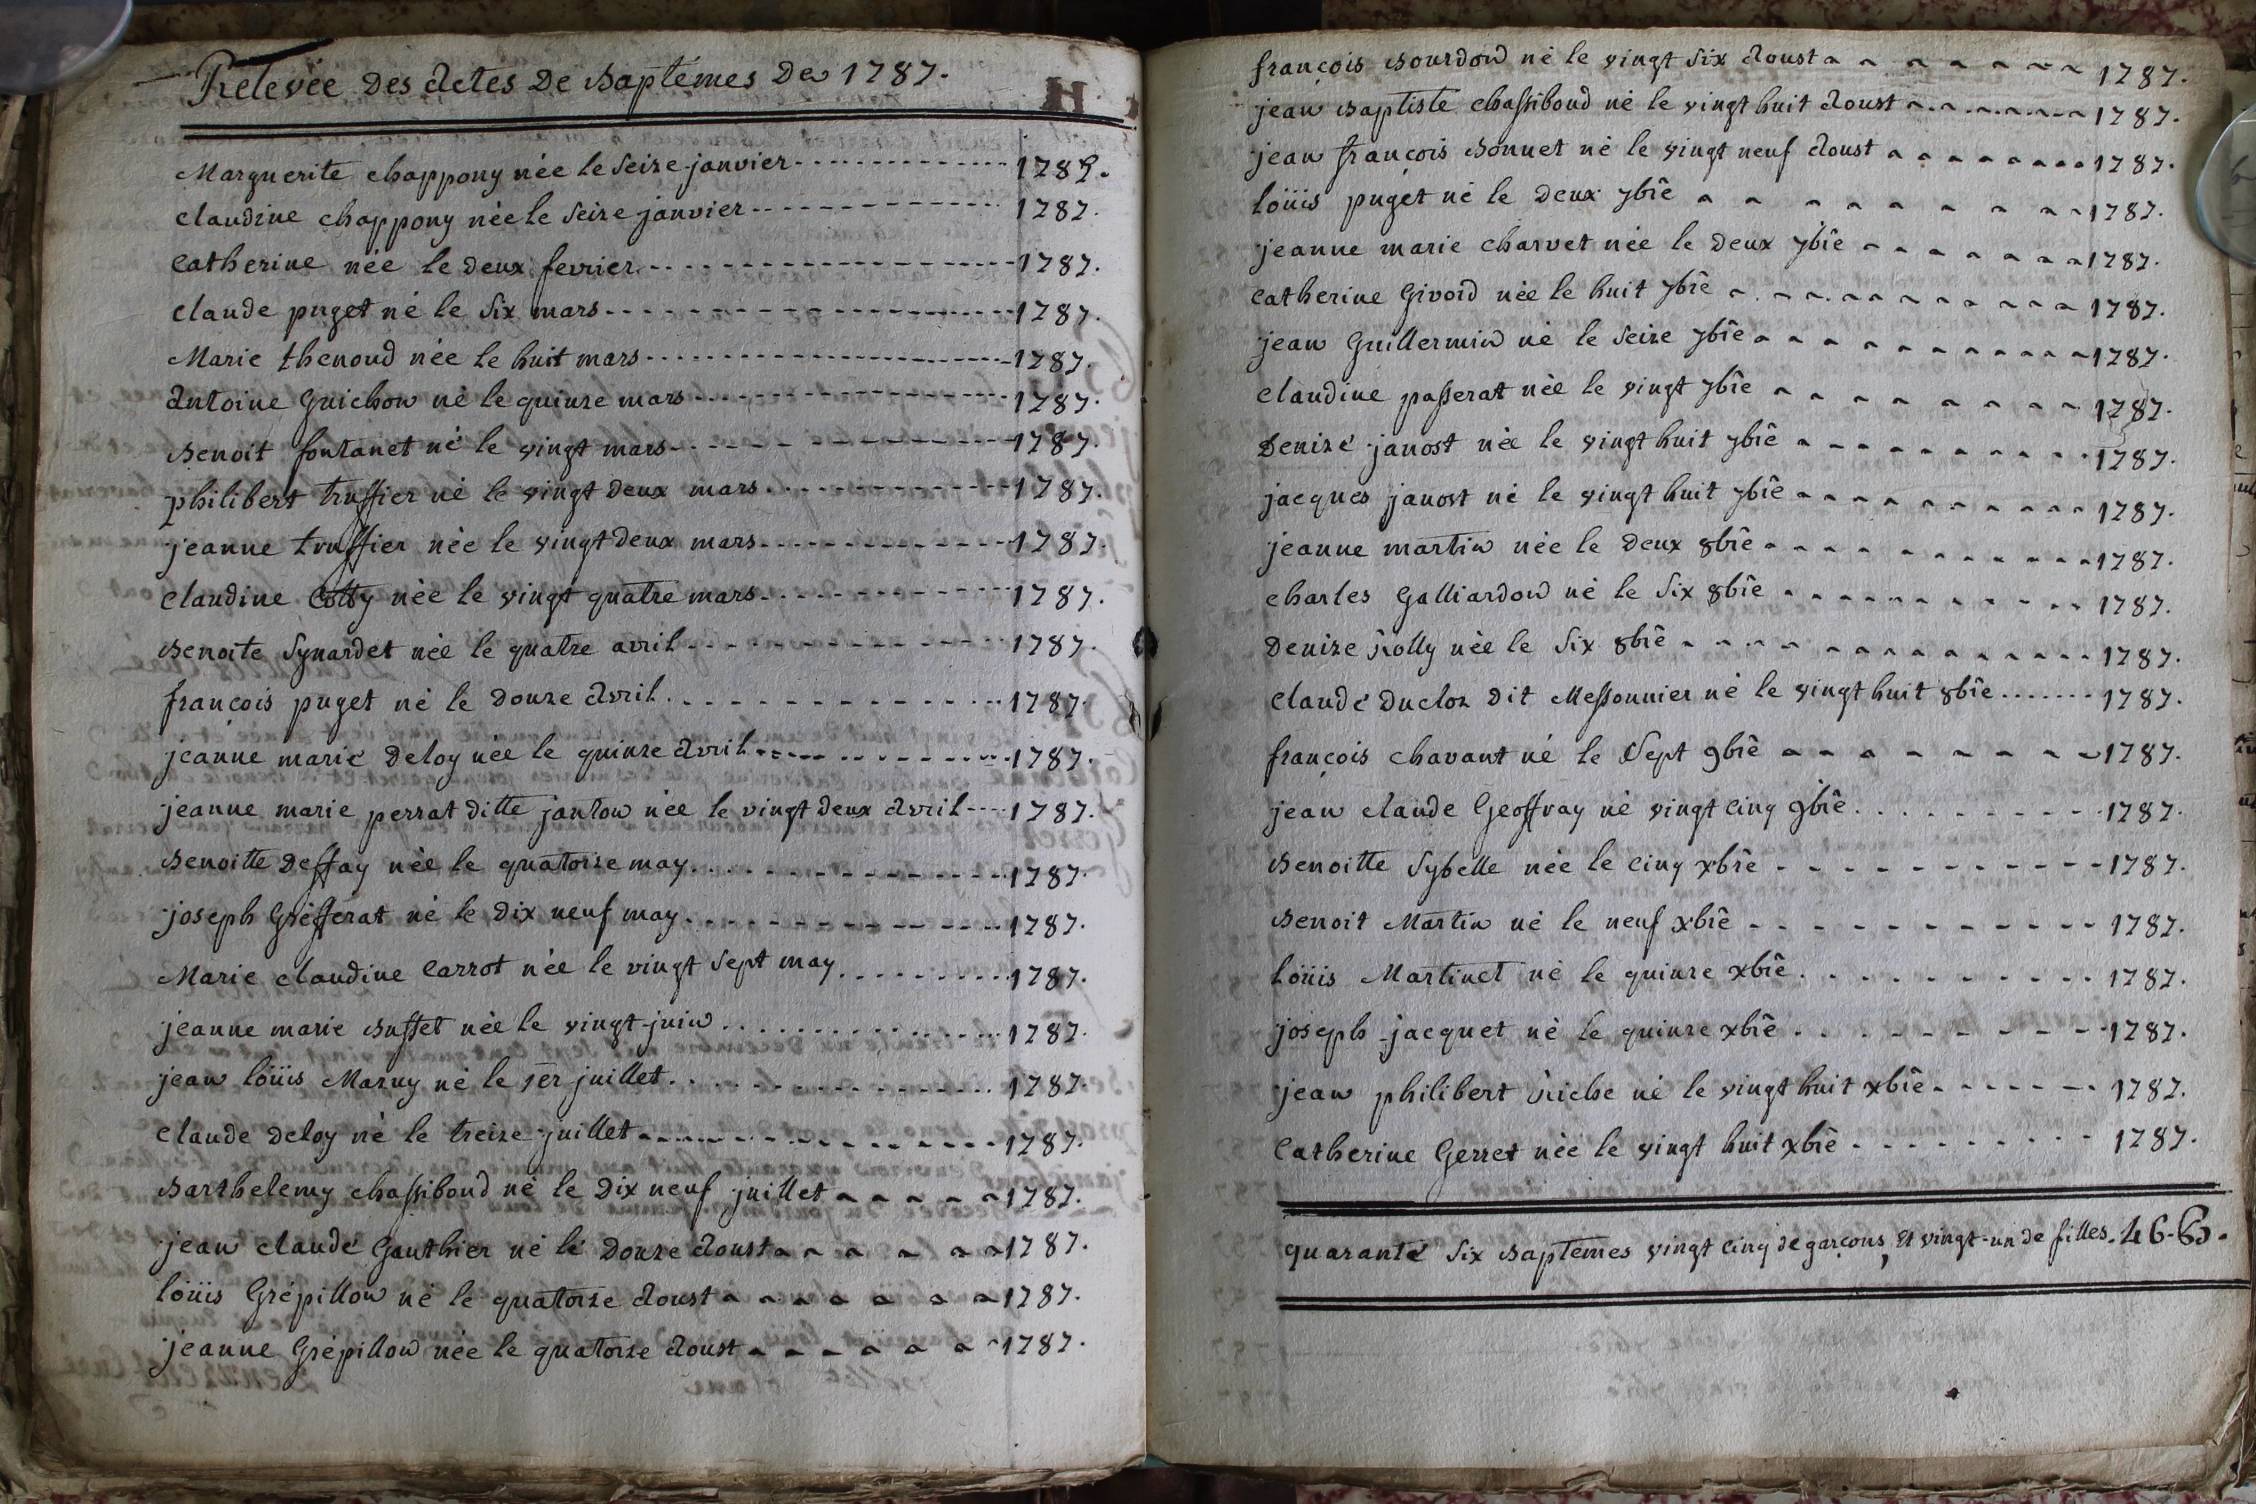 Relevée des Actes de Baptêmes de 1787.
Marguerite chappony née le seize janvier 1787.
claudine chappony née le seize janvier 1787.
catherine née le deux fevrier 1787.
claude puget né le six mars 1787.
Marie thenoud née le huit mars 1787.
Antoine Guichon né le quinze mars 1787.
Benoit fontanet né le vingt mars 1787.
philibert truffier né le vingt deux mars 1787.
jeanne truffier née le vingt deux mars 1787.
claudine Cotty née le vingt quatre mars 1787.
Benoite Synardet née le quatre avril 1787.
françois puget né le douze Avril 1787.
jeanne marie Deloy née le quinze Avril 1787.
jeanne marie perrat ditte janton née le vingt deux Avril 1787.
Benoitte Deffay née le quatorze may 1787.
joseph Grèfferat né le dix neuf may 1787.
Marie claudine Carrot née le vingt sept may 1787.
jeanne marie Busset née le vingt juin 1787.
jean löüis Maruy né le 1er juillet 1787.
claude deloy né le treize juillet 1787.
Barthelemy chassiboud né le Dix neuf juillet 1787.
jean claude Gauthier né le Douze Aoust 1787.
löüis Grépillon né le quatorze Aoust 1787.
jeanne Grépillon née le quatorze Aoust 1787.
françois Bourdon né le vingt six Aoust 1787.
jean Baptiste chassiboud né le vingt huit Aoust 1787.
jean françois Bonnet né le vingt neuf Aoust 1787.
löüis puget né le Deux 7bre 1787.
jeanne marie charvet née le Deux 7bre 1787.
catherine Givord née le huit 7bre 1787.
jean Guillermin né le seize 7bre 1787.
claudine passerat née le vingt 7bre 1787.
Denize janost née le vingt huit 7bre 1787.
jacques janost né le vingt huit 7bre 1787.
jeanne martin née le Deux 8bre 1787.
charles Galliardon né le six 8bre 1787.
Denize rolly née le six 8bre 1787.
claude Ducloz Dit Messonnier né le vingt huit 8bre 1787.
françois chavant né le Sept 9bre 1787.
jean claude Geoffray né vingt cinq 9bre 1787.
Benoitte Sybelle née le cinq xbre 1787.
Benoit Martin né le neuf xbre 1787.
Löüis Martinet né le quinze xbre 1787.
joseph jacquet né le quinze xbre 1787.
jean philibert riche né le vingt huit xbre 1787.
Catherine Gerret née le vingt huit xbre 1787.
quarante six Baptêmes vingt cinq de garçons, Et vingt-un de filles. 46-B.